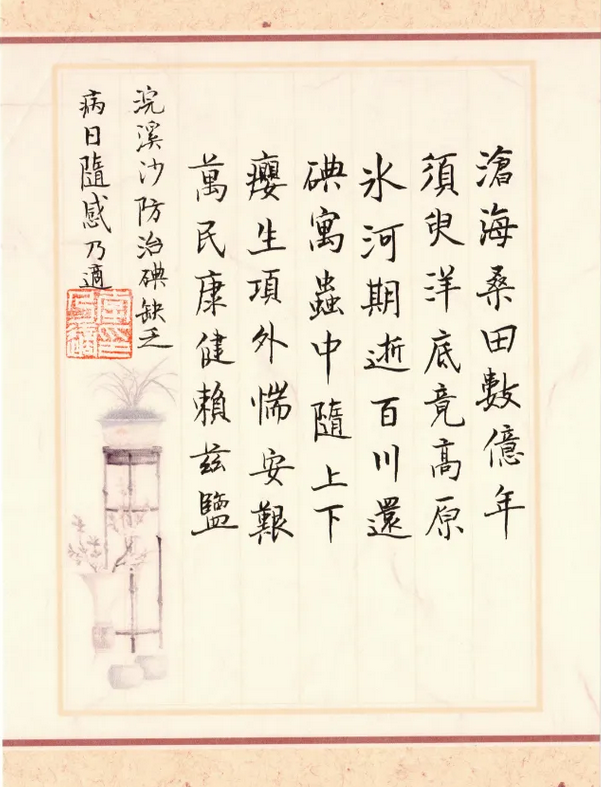 滄海桑田數億年
須臾洋底竟高原
氷河期逝百川還
碘寓蟲中隨上下
癭生項外惴安艱
萬民康健賴茲鹽
浣溪沙防治碘缺乏
病日隨感乃適